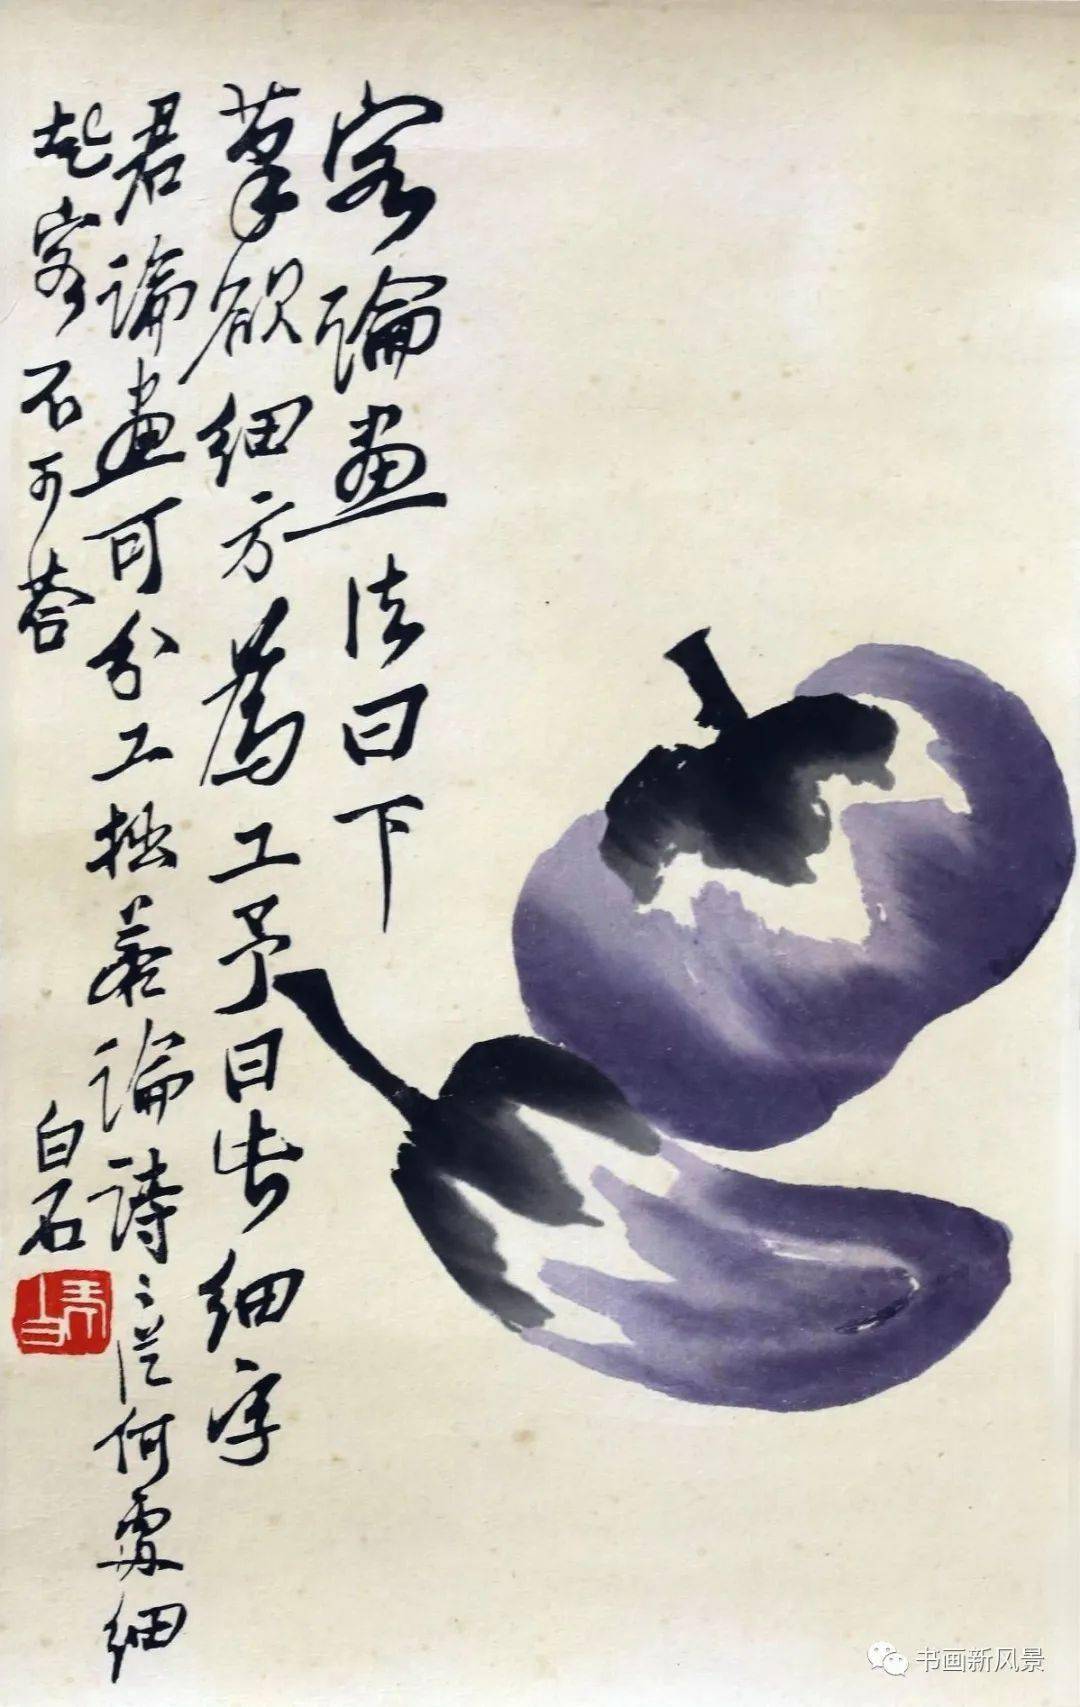 客論畫法曰下
筆欲細方為工予曰此細字
君論畫可分工拙若論詩〻從何處細
起客不可荅
白石
书画新风景